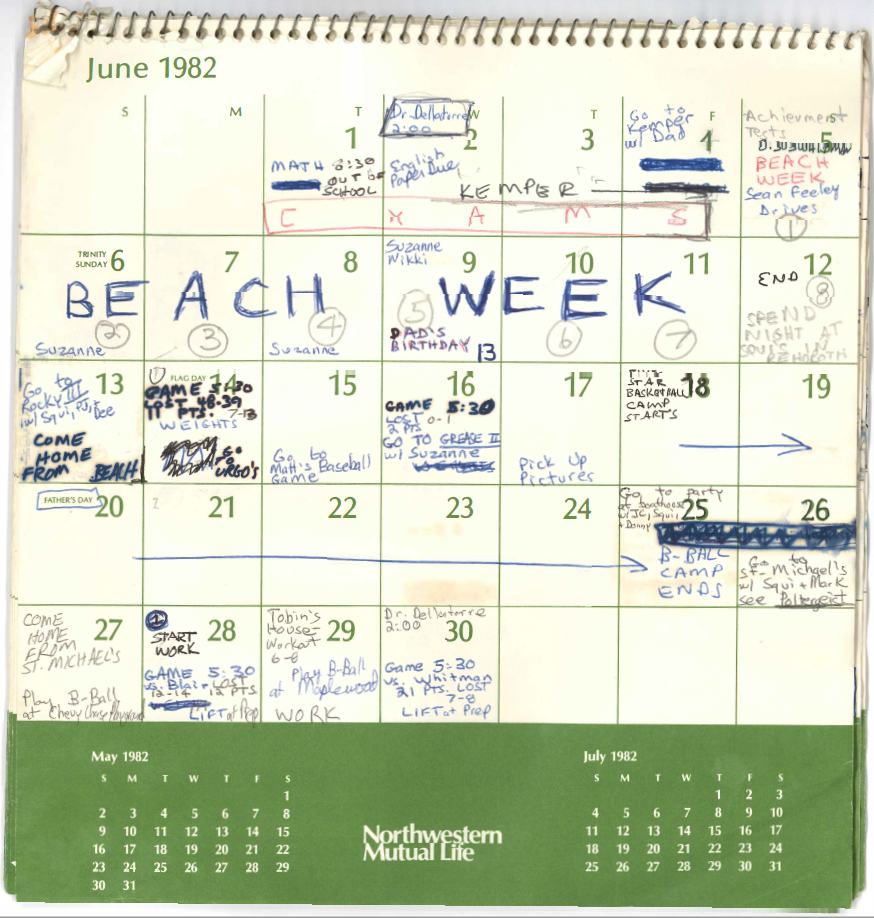 June 1982
S M T W T F S
1
MATH 8:30
OUT OF
SCHOOL
Dr. Dellatorre
2:00
2
English
Paper Due
3
KEMPER
Go to
Kemper
w/ Dad
4
Achievment
Tests
5
BEACH
WEEK
Sean Feeley
Drives
1
E X A M S
TRINITY
SUNDAY 6
2
Suzanne
7
3
8
4
Suzanne
Suzanne
Nikki
9
5
DAD'S
BIRTHDAY
13
10
6
11
7
12
END
8
SPEND
NIGHT AT
SQUI'S IN
REHOBOTH
BEACH WEEK
Go to
Rocky III
w/ Squi, PJ,+
Bee
13
COME
HOME
FROM BEACH
1
FLAG DAY 14
GAME 5:30
LOST 48-39
11 PTS. 7-13
WEIGHTS
GO
TO
URGO'S
15
Go to
Matt's Baseball
Game
16
GAME 5:30
LOST 0-1
2 PTS
GO TO GREASE II
w/ Suzanne
17
Pick Up
Pictures
FIVE
STAR
BASKETBALL
CAMP
START'S
18
19
FATHER'S DAY
20
2
21
22
23
24
Go to party
at boathouse
w/ JC, Squi,
+ Donny
25
B-BALL
CAMP
ENDS
26
Go to
St. Michael's
w/ Squi + Mark
see Poltergeist
COME
HOME
FROM
ST. MICHAEL'S
27
Play B-Ball
at Chevy Chase Playground
28
START
WORK
GAME 5:30
vs. Blair LOST
12-14 12 PTS
LIFT at Prep
Tobin's
House-
Workout
6-8
29
Play B-Ball
at Maplewood
WORK
Dr. Dellatorre
2:00
30
Game 5:30
vs. Whitman
21 PTS. LOST
7-8
LIFT at Prep
May 1982
S M T W T F S
1
2 3 4 5 6 7 8
9 10 11 12 13 14 15
16 17 18 19 20 21 22
23 24 25 26 27 28 29
30 31
Northwestern
Mutual Life
July 1982
S M T W T F S
1 2 3
4 5 6 7 8 9 10
11 12 13 14 15 16 17
18 19 20 21 22 23 24
25 26 27 28 29 30 31